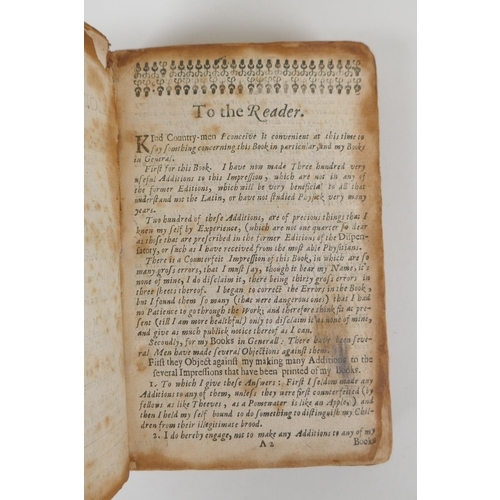 To the Reader.
KInd Country-men I conceive it convenient at this time to
say somthing concerning this Book in particular, and my Books
in General.
First for this Book. I have now made Three hundred very
useful Additions to this Impression, which are not in any of
the former Editions, which will be very beneficial to all that
understand not the Latin, or have not studied Physick very many
years.
Two hundred of these Additions, are of precious things that I
know my self by Experience, (which are not one quarter so dear
as those that are prescribed in the former Editions of the Dispen-
satory, or such as I have received from the most able Physitians.
There is a Counterfeit Impression of this Book, in which are so
many gross errors, that I must say, though it bear my Name, it's
none of mine, I do disclaim it, there being thirty gross errors in
three sheets thereof. I began to correct the Errors in the Book,
but I found them so many (that were dangerous ones) that I had
no Patience to go through the Work; and therefore think fit at pre-
sent (till I am more healthful) only to disclaim it as none of mine,
and give as much publick notice thereof as I can.
Secondly, for my Books in Generall: There have been seve-
ral Men have made several Objections against them.
First they Object against my making many Additions to the
several Impressions that have been printed of my Books.
1. To which I give these Answers: First I seldom made any
Additions to any of them, unless they were first counterfeited (by
fellows as like Theeves, as a Pomewater is like an Apple,) and
then I held my self bound to do something to distinguish my Chil-
dren from their illegitimate brood.
2. I do hereby engage, not to make any Additions to any of my
A 2 Books